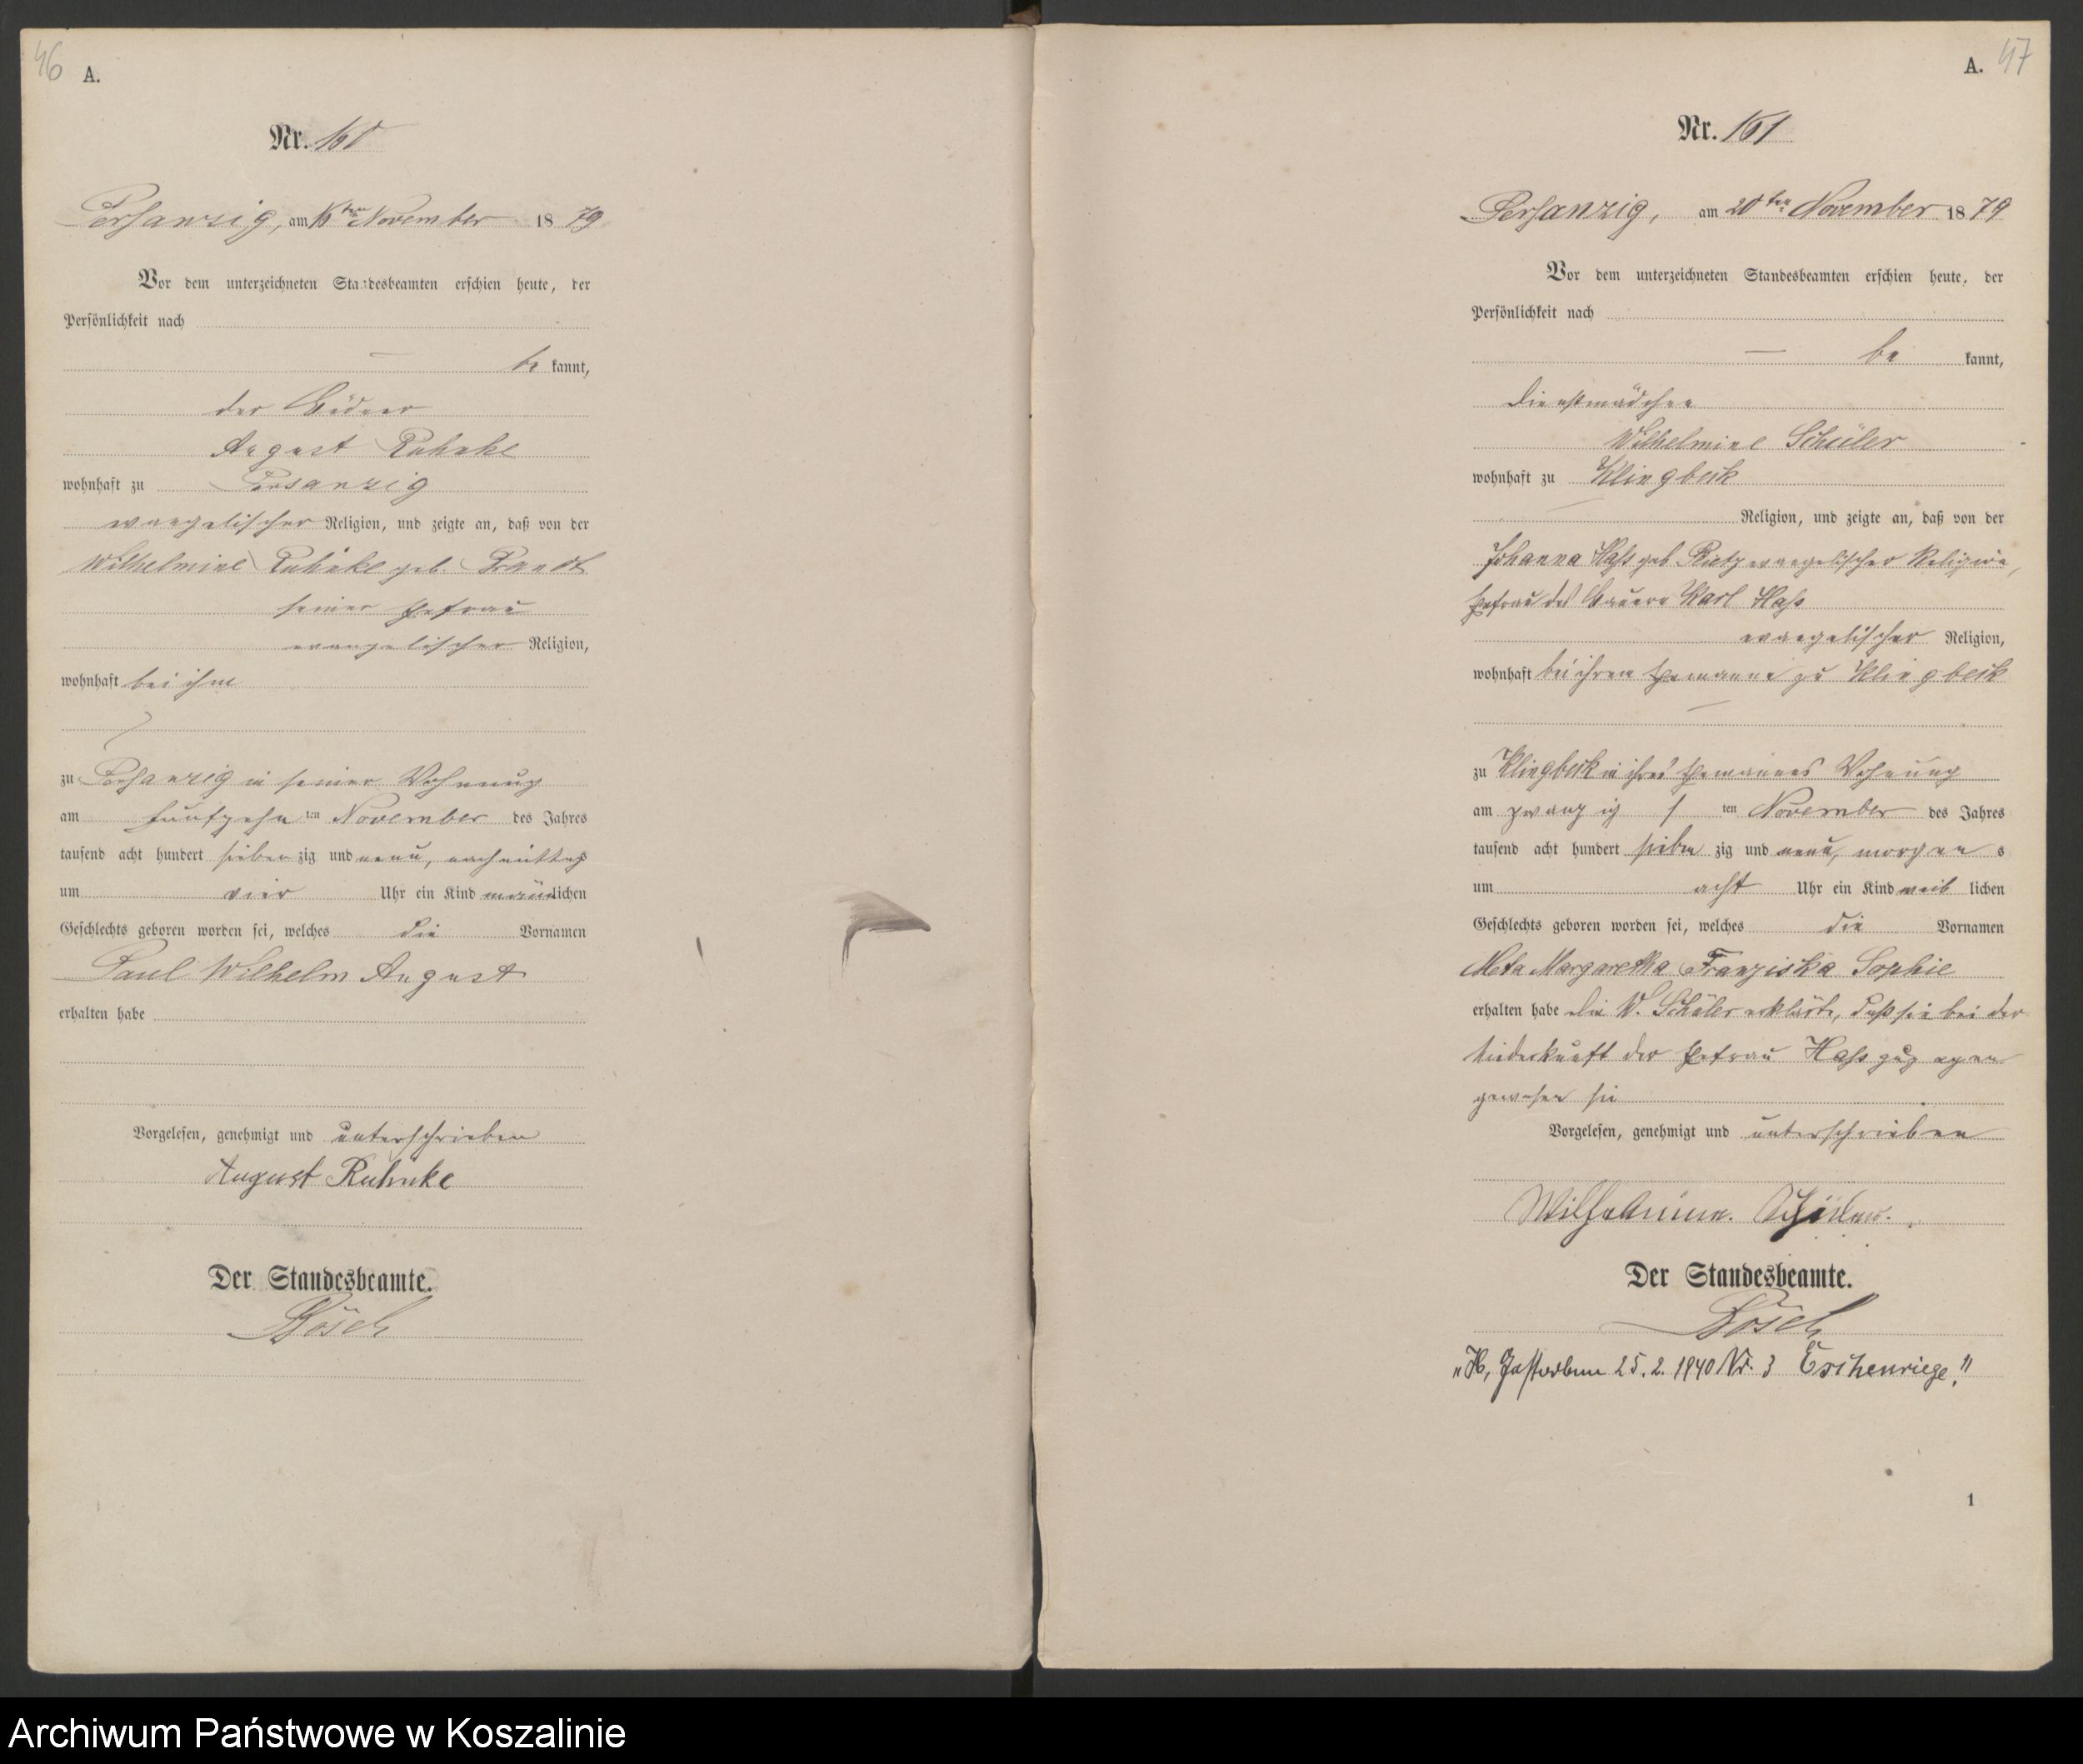 46 A.
Nr. 160
Persanzig, am 16ten November 1879
Vor dem unterzeichneten Standesbeamten erschien heute, der
Persönlichkeit nach
— be kannt,
der Büdner
August Ruhnke
wohnhaft zu Persanzig
evangelischer Religion, und zeigte an, daß von der
Wilhelmine Ruhnke geb.
seiner Ehefrau
evangelischer Religion,
wohnhaft bei ihm
zu Persanzig in seiner Wohnung
am fünfzehn ten November des Jahres
tausend acht hundert sieben zig und neun, nachmittag
um vier Uhr ein Kind männlichen
Geschlechts geboren worden sei, welches die Vornamen
Paul Wilhelm August
erhalten habe
Vorgelesen, genehmigt und unterschrieben
August Ruhnke
Der Standesbeamte.
Bösch
A. 47
Nr. 161
Persanzig, am 20ten November 1879
Vor dem unterzeichneten Standesbeamten erschien heute, der
Persönlichkeit nach
— be kannt,
Dienstmädchen
Wilhelmine Schüler
wohnhaft zu Klingbeck
Religion, und zeigte an, daß von der
Johanna Hass geb. evangelischer Religion,
Ehefrau des Bauern Karl Hass
evangelischer Religion,
wohnhaft bei ihrem Ehemanne zu Klingbeck
zu Klingbeck in ihres Ehemannes Wohnung
am zwanzig s ten November des Jahres
tausend acht hundert sieben zig und neun, morgen s
um acht Uhr ein Kind weib lichen
Geschlechts geboren worden sei, welches die Vornamen
Meta Margaretha Franziska Sophie
erhalten habe die W. Schüler erklärte, daß sie bei der
Niederkunft der Ehefrau Hass zugegen
gewesen sei
Vorgelesen, genehmigt und unterschrieben
Wilhelmine. Schüler.
Der Standesbeamte.
Bösch
"H, Gestorben 25.2.1940 Nr. 3 Eschenriege."
1
Archiwum Państwowe w Koszalinie